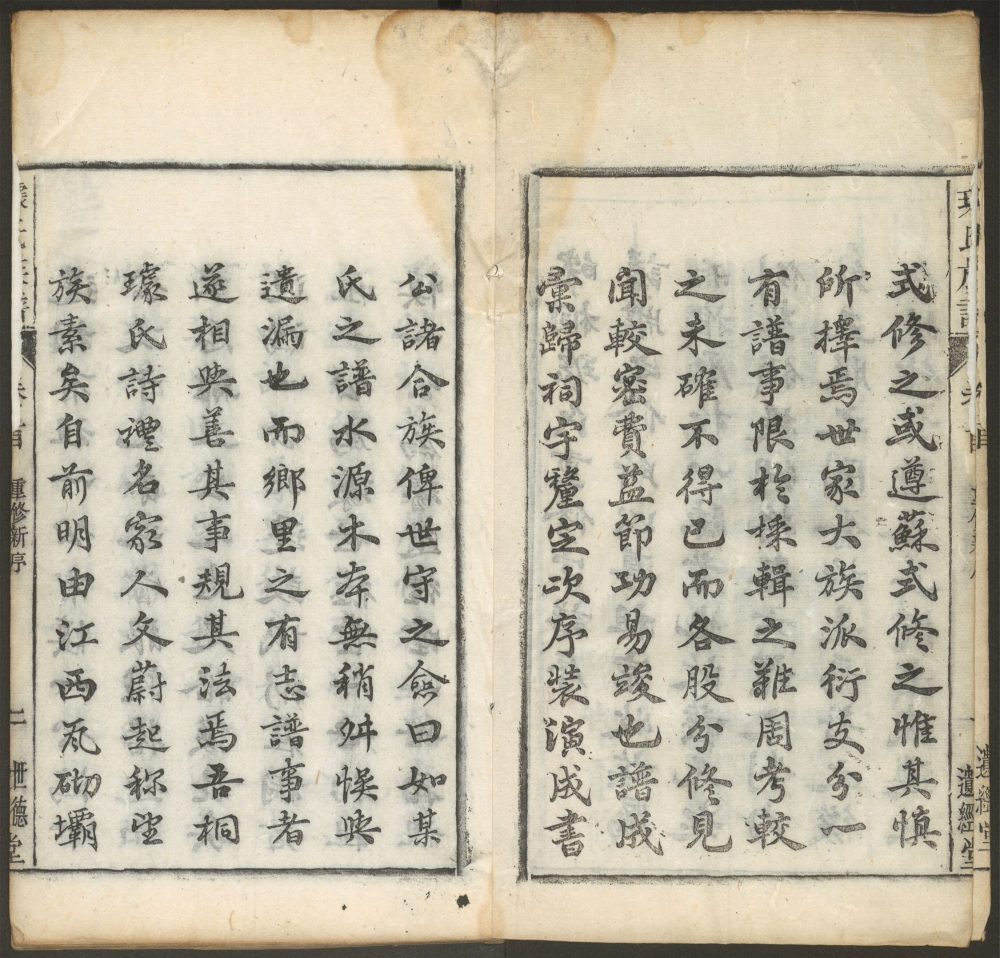 式修之或遵蘇式修之惟其慎
所擇焉世家大族派衍支分一
有譜事限於採輯之難周考較
之未確不得已而各股分修見
聞較密費益節功易竣也譜成
彙歸祠宇釐定次序裝演成書
公諸合族俾世守之僉曰如某
氏之譜水源木本無稍舛悞與
遺漏也而鄉里之有志譜事者
遂相與善其事規其法焉吾桐
璩氏詩禮名家人文蔚起称望
族素矣自前明由江西瓦砌壩
氏族譜
遺經堂
遺經堂
重修新序
二
世德堂